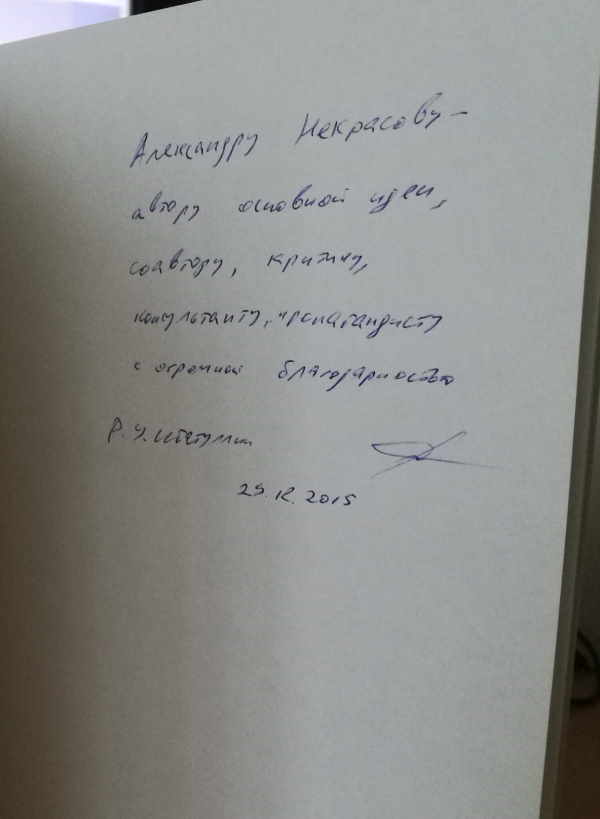 Александру Некрасову —
автору основной идеи,
соавтору, критику,
консультанту, пропагандисту
с огромной благодарностью
Р. У. Ибатуллин
29.12.2015